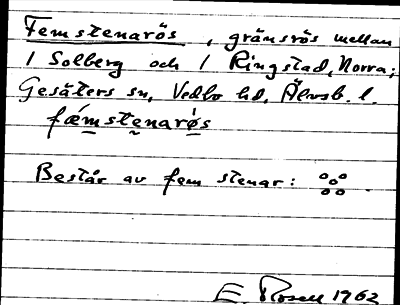 Femstenarös, gränsrös mellan
1 Solberg och 1 Ringstad, Norra;
Gesäters sn, Vedbo hd, Älvsb. l.
fæ̀mstenarø̀s
Består av fem stenar:
E. Rosell 1962